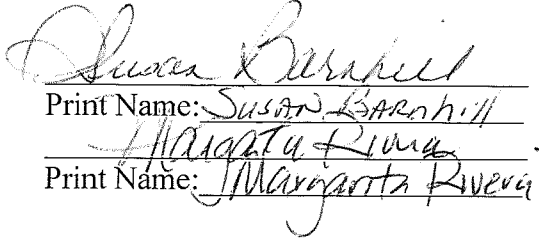 Susan Barnhill
Print Name: SUSAN BARNhill
Margarita Rivera
Print Name: Margarita Rivera